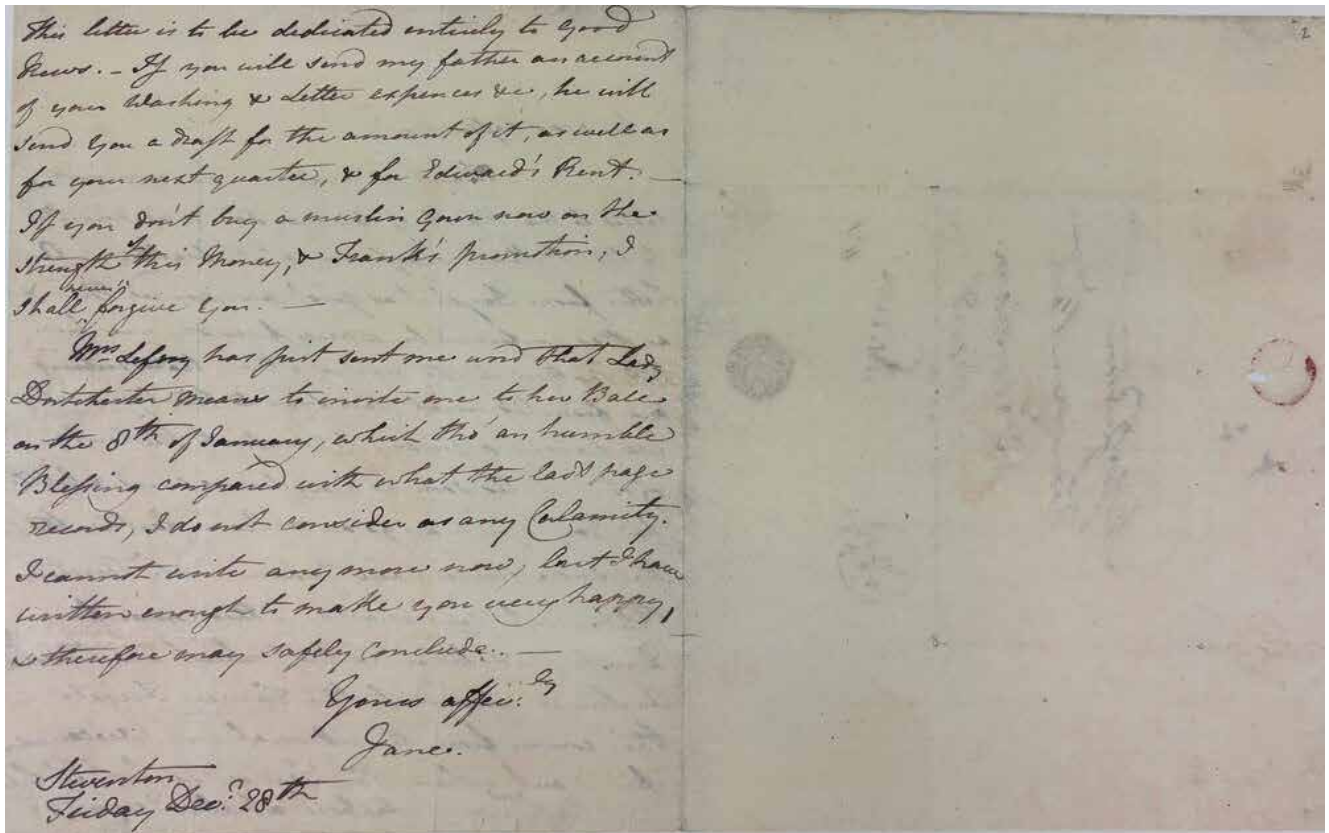 This letter is to be dedicated entirely to Good
News. — If you will send my father an account
of your Washing & Letter expences &c, he will
send you a draft for the amount of it, as well as
for your next quarter, & for Edward's Rent. —
If you don't buy a muslin Gown now on the
strength of this Money, & Frank's promotion, I
shall never forgive You. —
Mrs Lefroy has just sent me word that Lady
Dortchester means to invite me to her Ball
on the 8th of January, which tho' an humble
Blessing compared with what the last page
records, I do not consider as any Calamity.
I cannot write any more now, but I have
written enough to make you very happy,
& therefore may safely conclude. —
Yours affec:ly
Jane.
Steventon
Friday Decr 28th
2